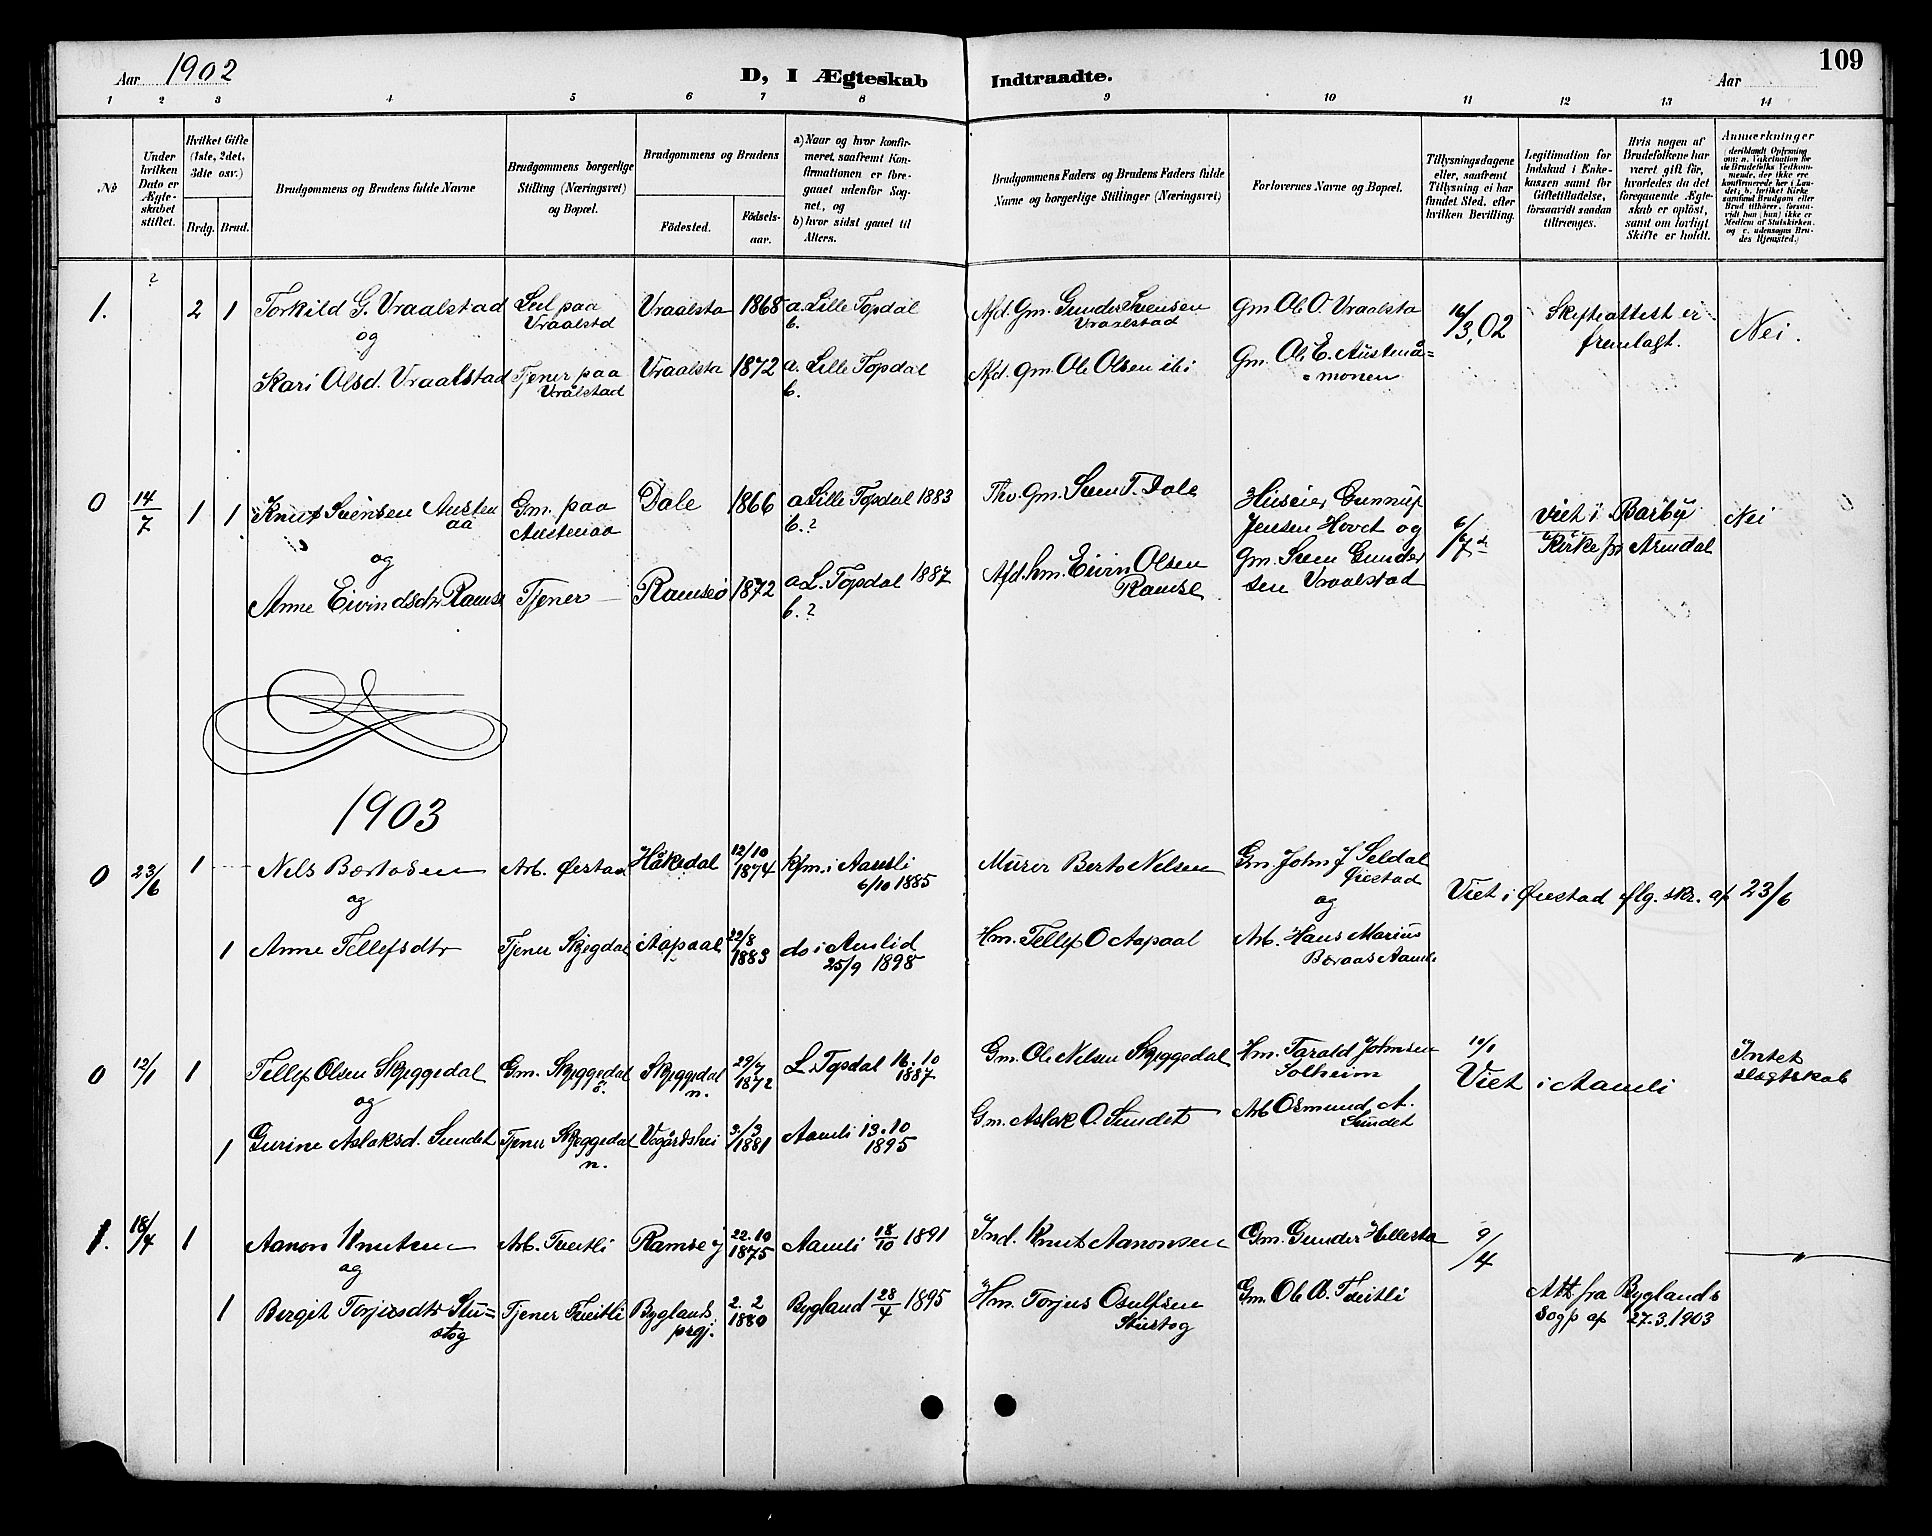 109
Aar 1902
D, I Ægteskab Indtraadte.
Aar
1 2 3 4 5 6 7 8 9 10 11 12 13 14
No
Under hvilken Dato er Ægteskabet stiftet.
Hvilket Gifte (1ste, 2det, 3dte osv.)
Brdg. Brud.
Brudgommens og Brudens fulde Navne
Brudgommens borgerlige Stilling (Næringsvei) og Bopæl.
Brudgommens og Brudens
Födested.
Födselsaar.
a) Naar og hvor konfirmeret, saafremt Konfirmationen er foregaaet udenfor Sognet, og
b) hvor sidst gaaet til Alters.
Brudgommens Faders og Brudens Faders fulde Navne og borgerlige Stillinger (Næringsvei)
Forlovernes Navne og Bopæl.
Tillysningsdagene eller, saafremt Tillysning ei har fundet Sted, efter hvilken Bevilling.
Legitimation for Indskud i Enkekassen samt for Giftetilladelse, forsaavidt saadan tiltrænges.
Hvis nogen af Brudefolkene har været gift för, hvorledes da det foregaaende Ægteskab er oplöst, samt om lovligt Skifte er holdt.
Anmærkninger (deriblandt Oplysning om: a. Vakcination for de Brudefolks Vedkommende, der ikke ere konfirmerede her i Landet; b. hvilket Kirkesamfund Brudgom eller Brud tilhører, forsaavidt han (hun) ikke er Medlem af Statskirken, og c. udensogns Brudes Hjemsted.)
1. 2 1 Torkild G. Vraalstad Sel paa Vraalstd Vraalsta 1868 a. Lille Topdal b. Afd. Gm. Gunder Svensen Vraalstad Gm Ole O. Vraalsta 16/3,02 Skifteattest er fremlagt. Nei.
og
Kari Olsd. Vraalstad Tjener paa Vrålstad Vraalsta 1872 a. Lille Topdal b. Afd. Gm. Ole Olsen ibi Gm. Ole E. Austenå=monen
0 14/7 1 1 Knut Svensen Austenaa Gm. paa Austenaa Dale 1866 a Lille Topdal 1883 b.? Gm. Sven T. Dale Huseier Gunnuf Jensen Hovet og 6/7 Viet i Barby Kirke pr Arendal Nei
og
Anne Eivindsdtr Ramse Tjener Ramseö 1872 a L. Topdal 1887 b.? Afd. hm. Eivin Olsen Ramse Gm. Sven Gundersen Vraalstad
1903
0 23/6 1 Nels Bertosen Arb. Øiestad Håkedal 12/10 1874 kfm. i Aamli 6/10 1885 Murer Berto Nelsen Gm. John J Seldal Øiestad Viet i Øiestad flg. skr. af 23/6
og og
1 Anne Tellefsdtr Tjener Skjegdal Aapaal 22/8 1883 do i Amlid 25/9 1898 Hm. Tellef O Aapaal Arb. Hans Marius Beraas Aamli
0 12/1 1 Tellef Olsen Skjeggedal Gm. Skjeggedal ö. Skjeggedal n. 29/7 1872 L. Topdal 16.10 1887 Gm. Ole Nelsen Skjeggedal Hm. Tarald Johnsen Solheim 10/1 Viet i Aamli Intet slægtskab
og
1 Gurine Aslaksd. Sundet Tjener Skjeggedal n. Vegårdshei 3/3 1881 Aamli 13.10 1895 Gm. Aslak O. Sundet Arb Osmund A. Sundet
1. 18/4 1 Aanon Knutsen Arb. Tveitli Ramse y 22.10 1875 Aamli 18/10 1891 Ind. Knut Aanonsen Gm. Gunder Hillestad 9/4 "
og
1 Bergit Torjusdtr Stu=stog Tjener Tveitli Byglands prgj. 2.2 1880 Bygland 28/4 1895 Hm. Torjus Osulfsen Stustog Gm. Ole O. Tveitli Att. fra Byglands Sogp af 27.3.1903